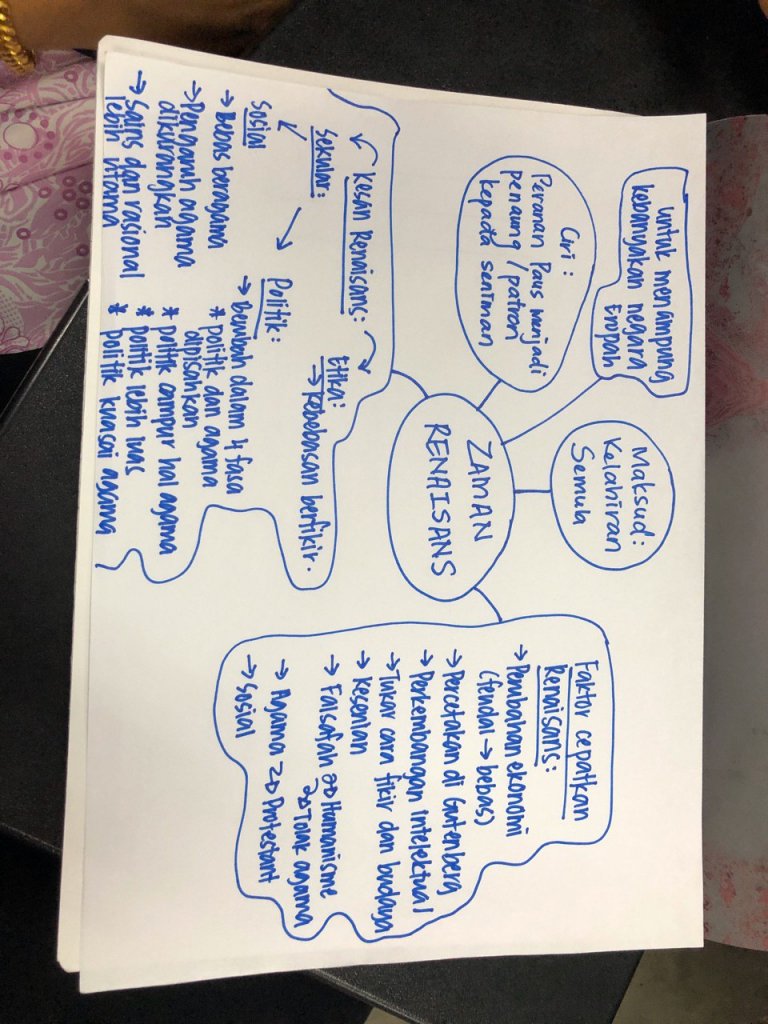 ZAMAN
RENAISANS
untuk menampung
kebanyakan negara
Eropah
Maksud:
Kelahiran
Semula
Ciri:
Peranan Paus menjadi
penaung / patron
kepada seniman
Kesan Renaisans:
Sekular:
Etika:
→ Kebebasan berfikir.
Sosial
→ Bebas beragama
→ Pengaruh agama
dikurangkan
→ Sains dan rasional
lebih utama
Politik:
→ Berubah dalam 4 fasa
* politik dan agama
dipisahkan
* politik campur hal agama
* politik lebih luas
* politik kuasai agama
Faktor cepatkan
Renaisans:
→ Perubahan ekonomi
(feudal → bebas)
→ Percetakan di Gutenberg
→ Perkembangan intelektual
→ Tukar cara fikir dan budaya
→ Kesenian
→ Falsafah → Humanisme
→ Tolak agama
→ Agama → Protestant
→ Sosial